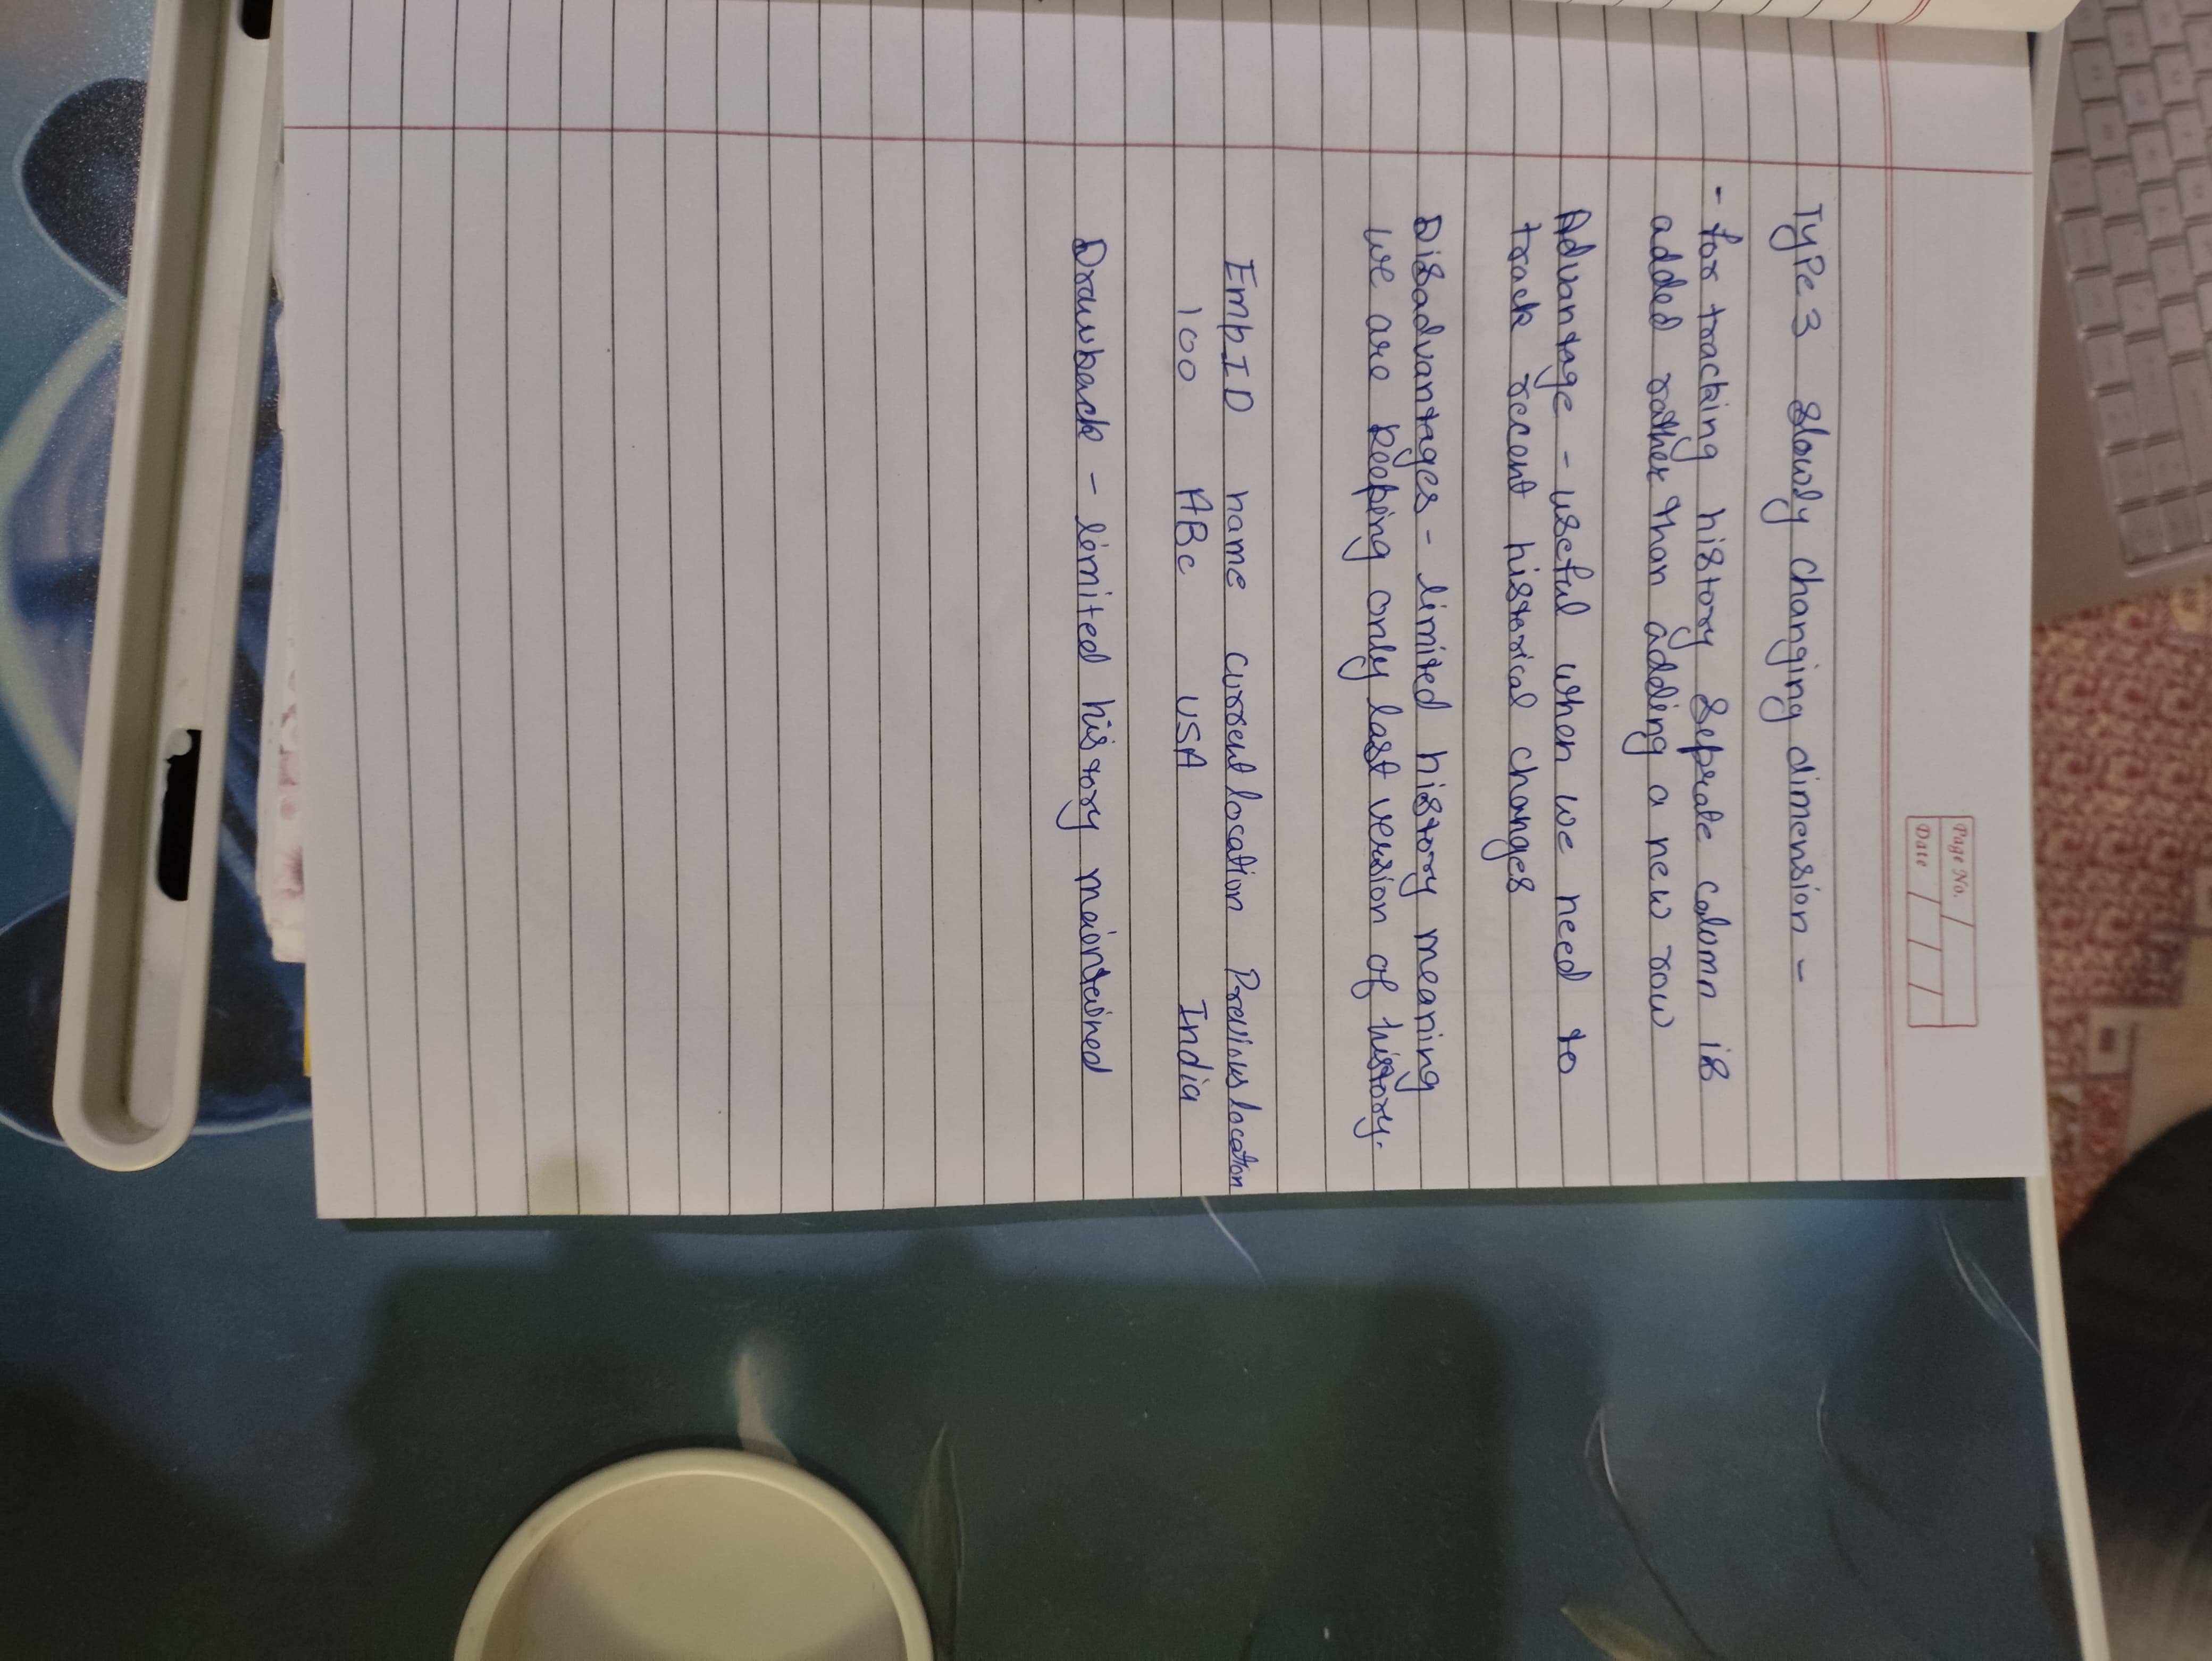 Page No.
Date
Type 3 slowly changing dimension -
- for tracking history seprate colomn is
added rather than adding a new row
Advantage - useful when we need to
track recent historical changes
Disadvantages - limited history meaning
we are keeping only last version of history.
EmpID name current location Previous location
100 ABC USA India
Drawback - limited history maintained